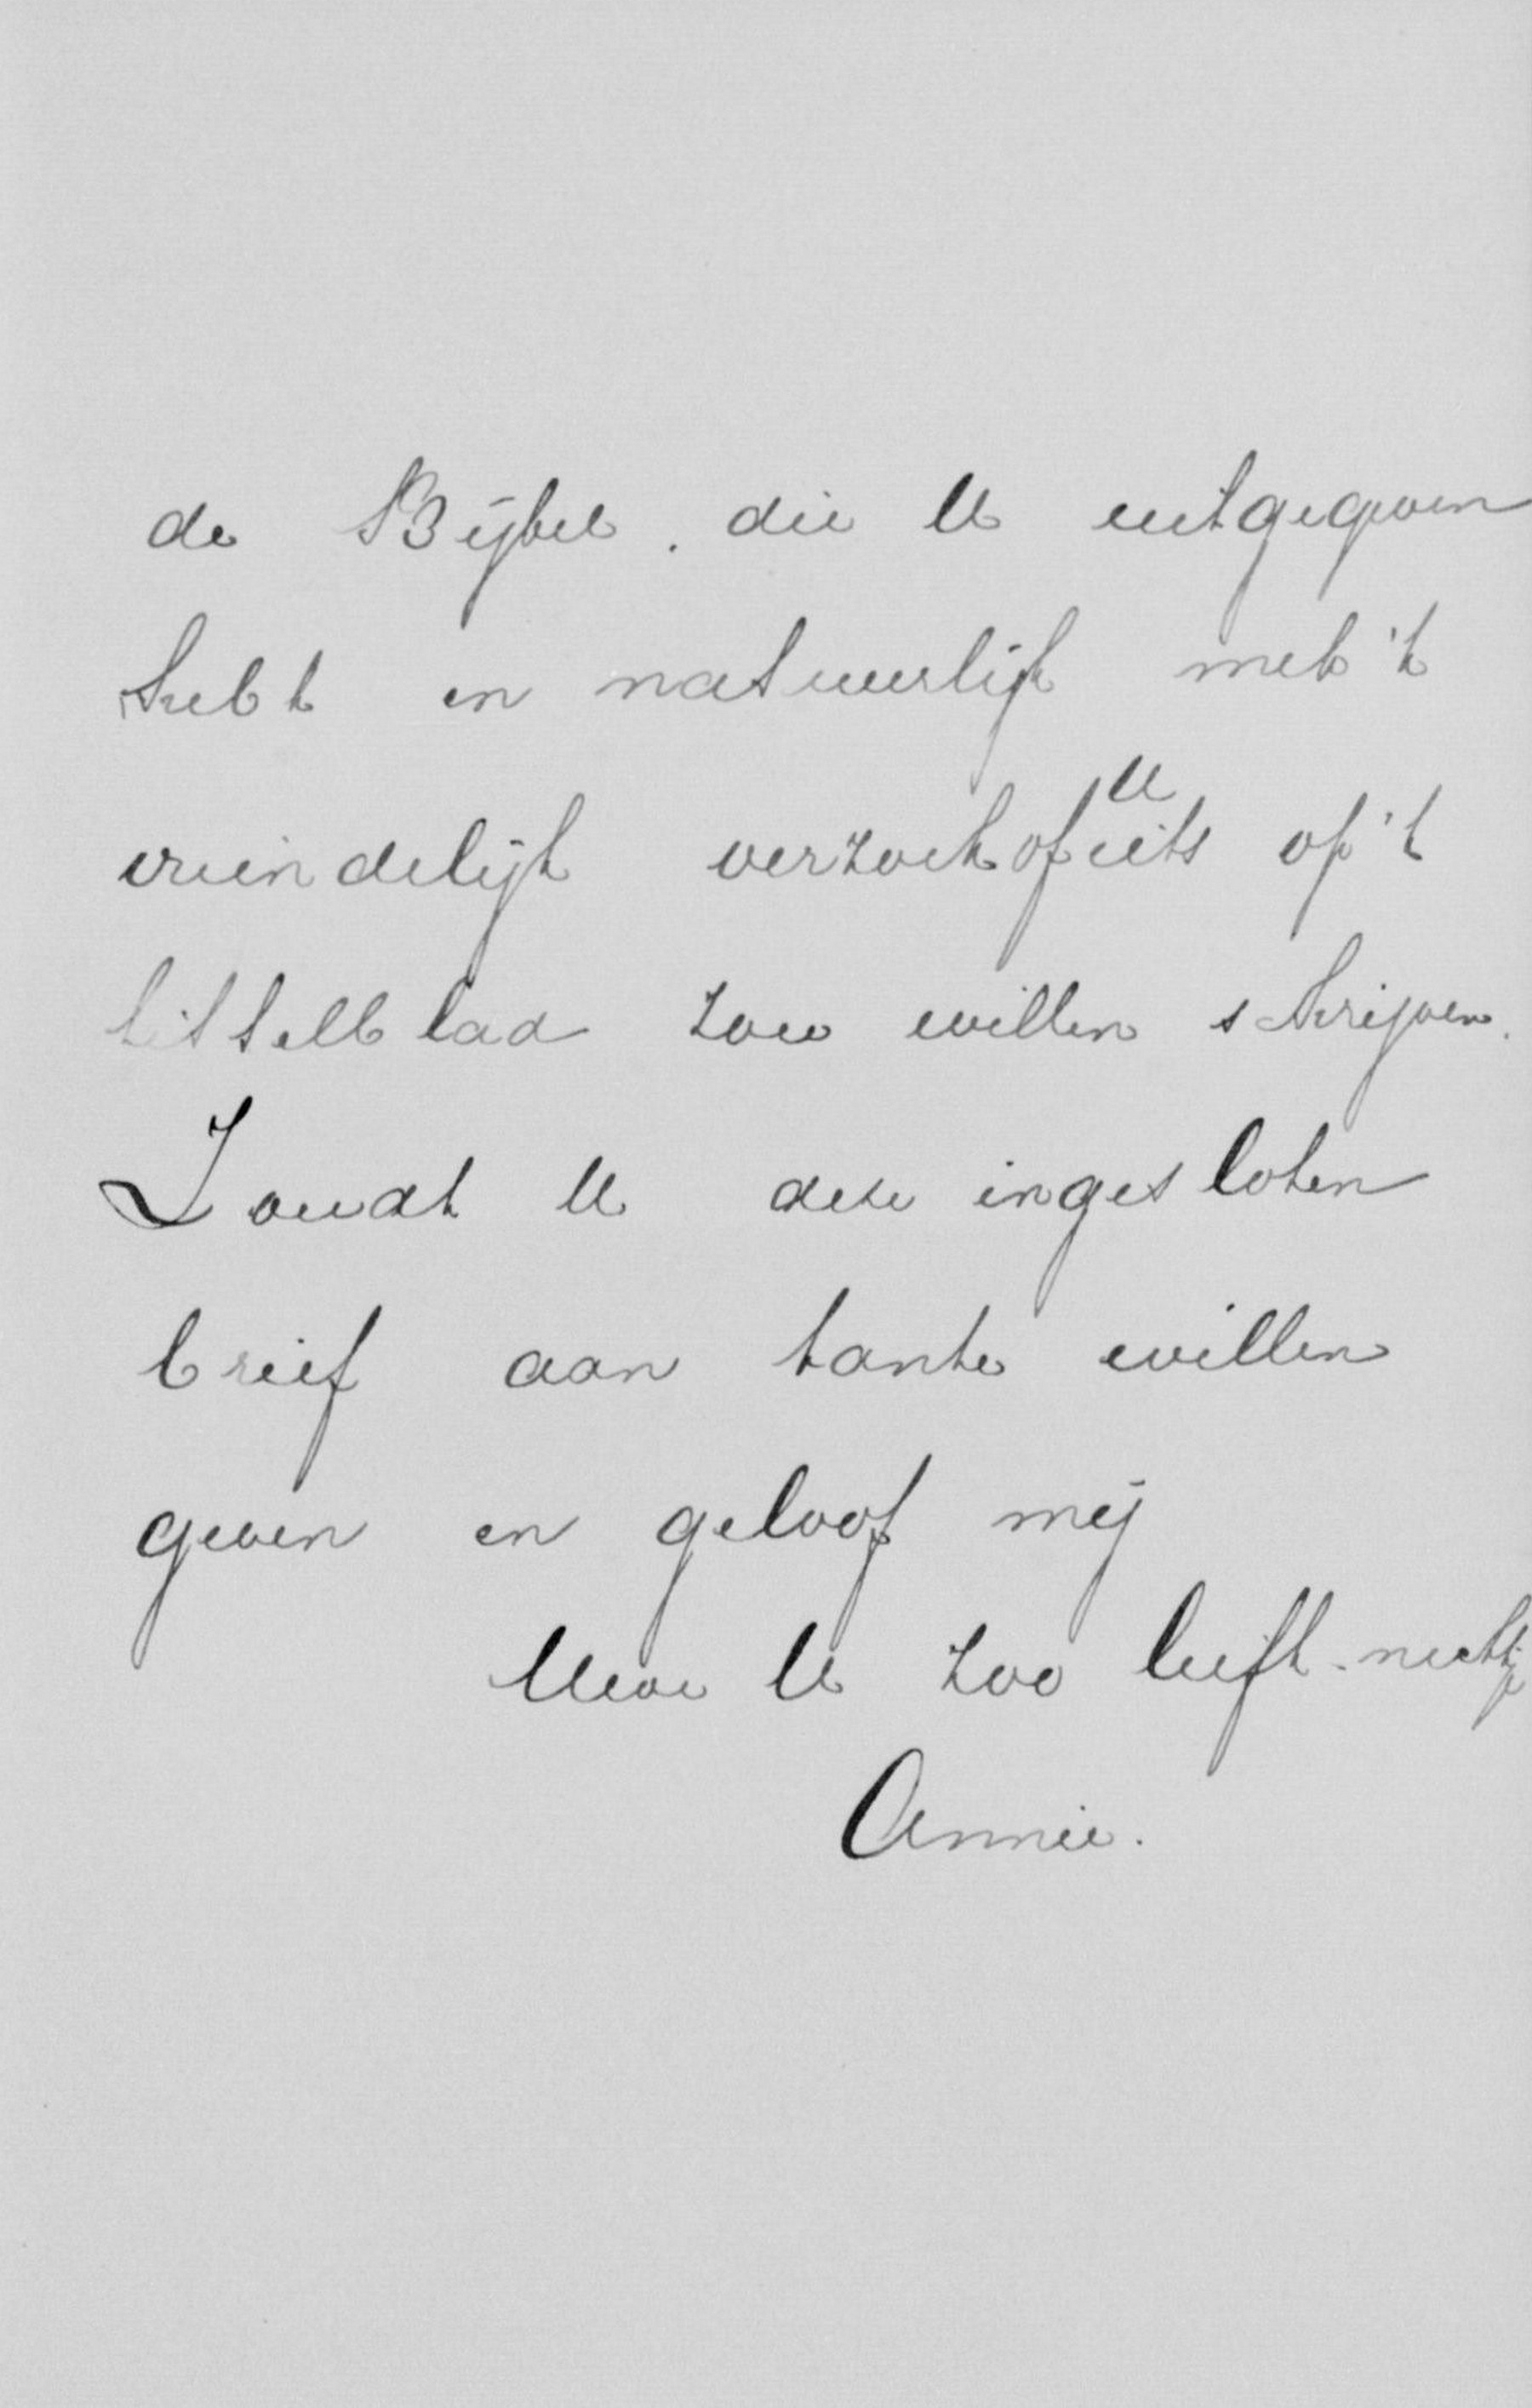 de Bijbel. die U uitgegeven
hebt en natuurlijk met 't
vriendelijk verzoek of U iets op 't
tittelblad zou willen schrijven.
Zoudt U deze ingesloten
brief aan tante willen
geven en geloof mij
Uwe U zoo liefh. nichtje
Annie.